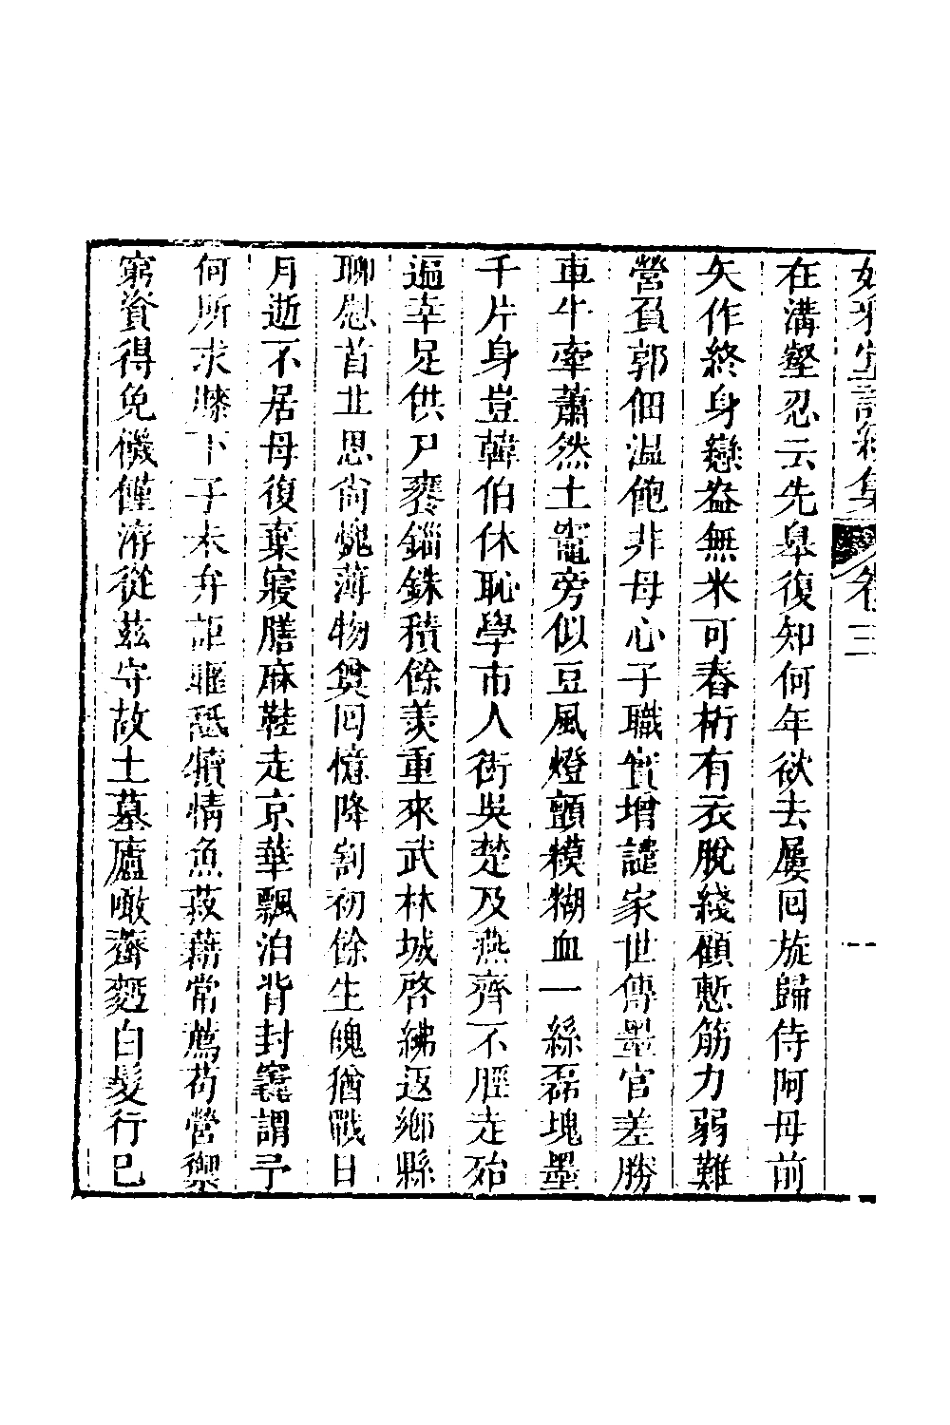 在溝壑忍云先臯復知何年欲去屢回旋歸侍阿母前
矢作終身戀盎無米可舂桁有衣脫綫顧慙筋力弱難
營負郭佃溫飽非母心子職實增譴家世傳墨官差勝
車牛牽蕭然土竈旁似豆風燈顫模糊血一絲磊塊墨
千片身豈韓伯休恥學市人衒吳楚及燕齊不脛走殆
遍幸足供尸饔錙銖積餘羨重來武林城啓紼返鄉縣
聊慰首丘思尚愧薄物奠回憶降割初餘生魄猶戰日
月逝不居母復棄寢膳麻鞋走京華飄泊背封窆謂予
何所求膝下子未弁詎曬舐犢情魚菽藉常薦苟營禦
窮資得免饑饉洊從茲守故土墓廬噉薺麪白髮行已